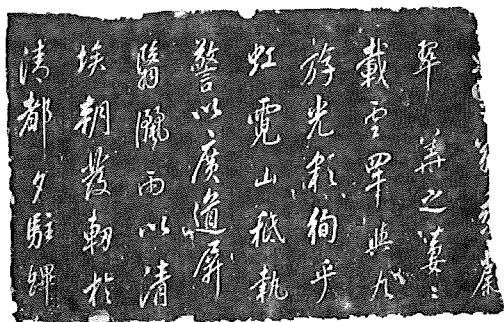 翠華之萋〻
載雲罕與九
斿光彩絢乎
虹霓山祇執
警以廣道屏
翳灑雨以清
埃朝發軔於
清都夕駐蹕